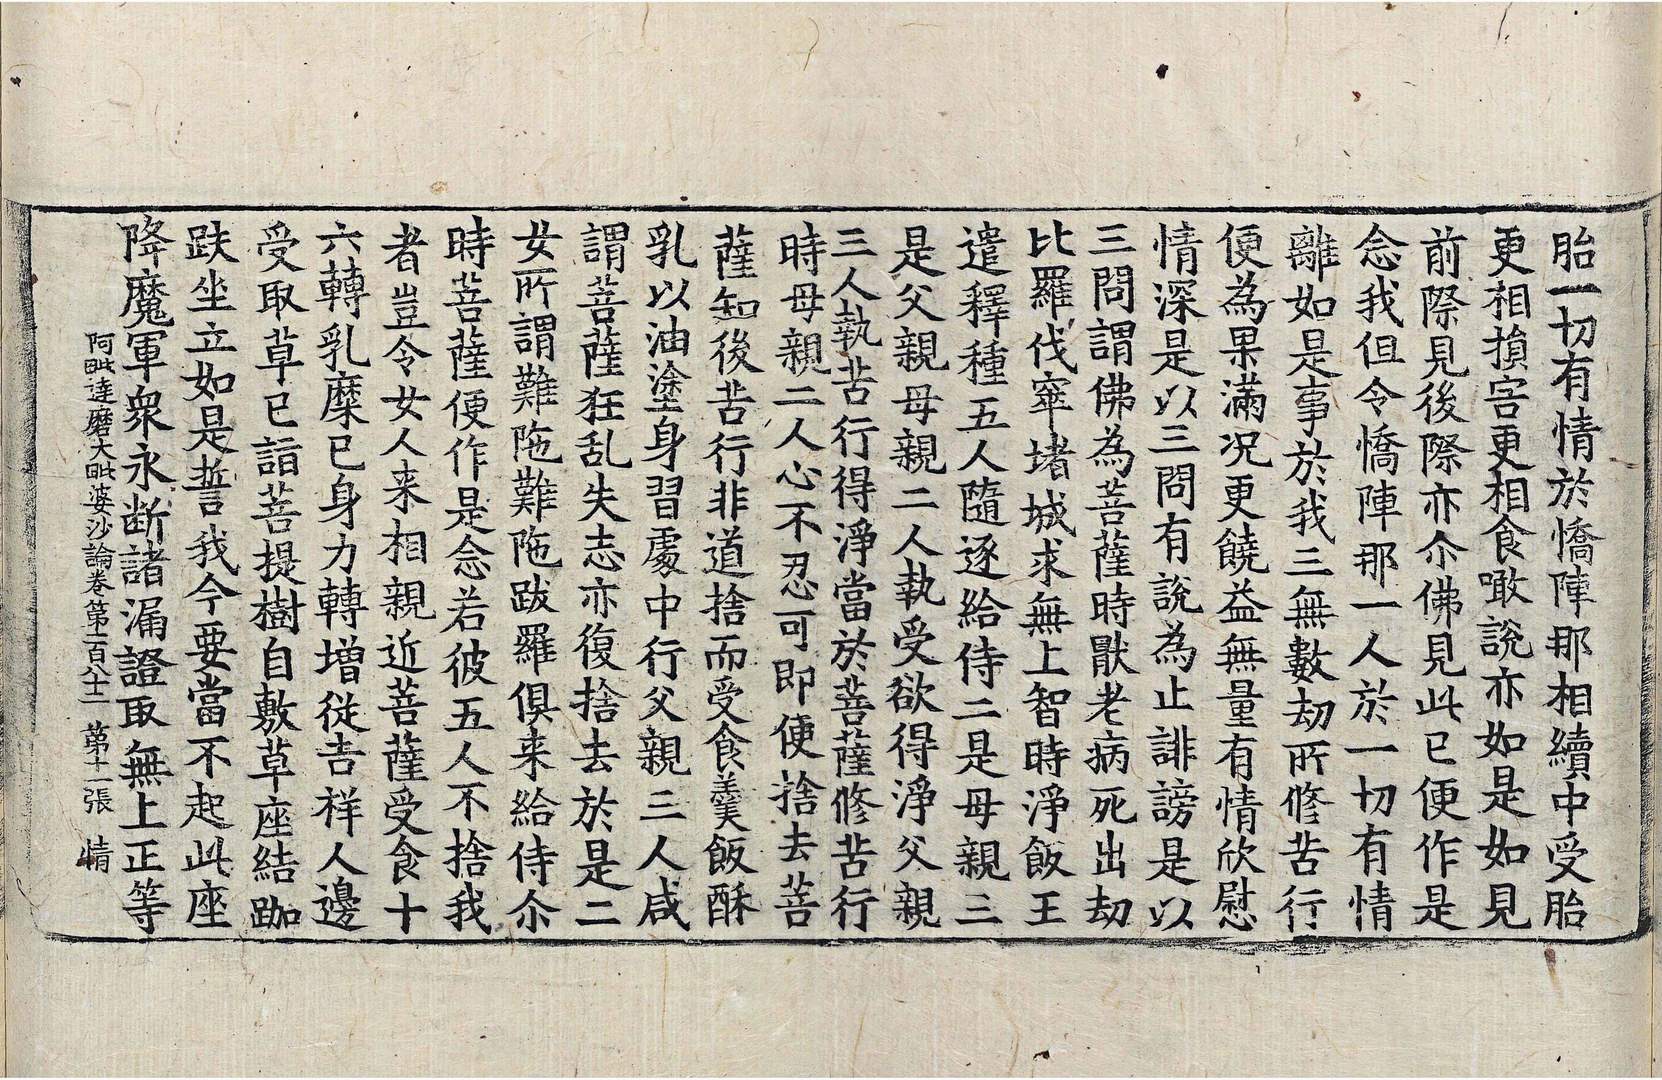 胎一切有情於憍陣那相續中受胎
更相損害更相食噉說亦如是如見
前際見後際亦尒佛見此已便作是
念我但令憍陣那一人於一切有情
離如是事於我三無數劫所修苦行
便為果滿况更饒益無量有情欣慰
情深是以三問有說為止誹謗是以
三問謂佛為菩薩時猒老病死出劫
比羅伐窣堵城求無上智時淨飯王
遣釋種五人隨逐給侍二是母親三
是父親母親二人執受欲得淨父親
三人執苦行得淨當於菩薩修苦行
時母親二人心不忍可即便捨去菩
薩知後苦行非道捨而受食羹飯酥
乳以油塗身習處中行父親三人咸
謂菩薩狂乱失志亦復捨去於是二
女所謂難陁難陁跋羅俱来給侍尒
時菩薩便作是念若彼五人不捨我
者豈令女人来相親近菩薩受食十
六轉乳糜已身力轉增從吉祥人邊
受取草已詣菩提樹自敷草座結跏
趺坐立如是誓我今要當不起此座
降魔軍衆永断諸漏證取無上正等
阿毗達磨大毗婆沙論卷第一百八十二　第十一張　情